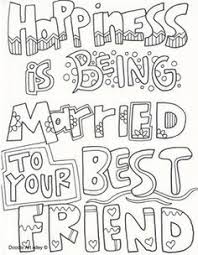 HAPPINESS
is BEING
MARRIED
TO YOUR BEST
FRIEND
Doodle Art Alley ©